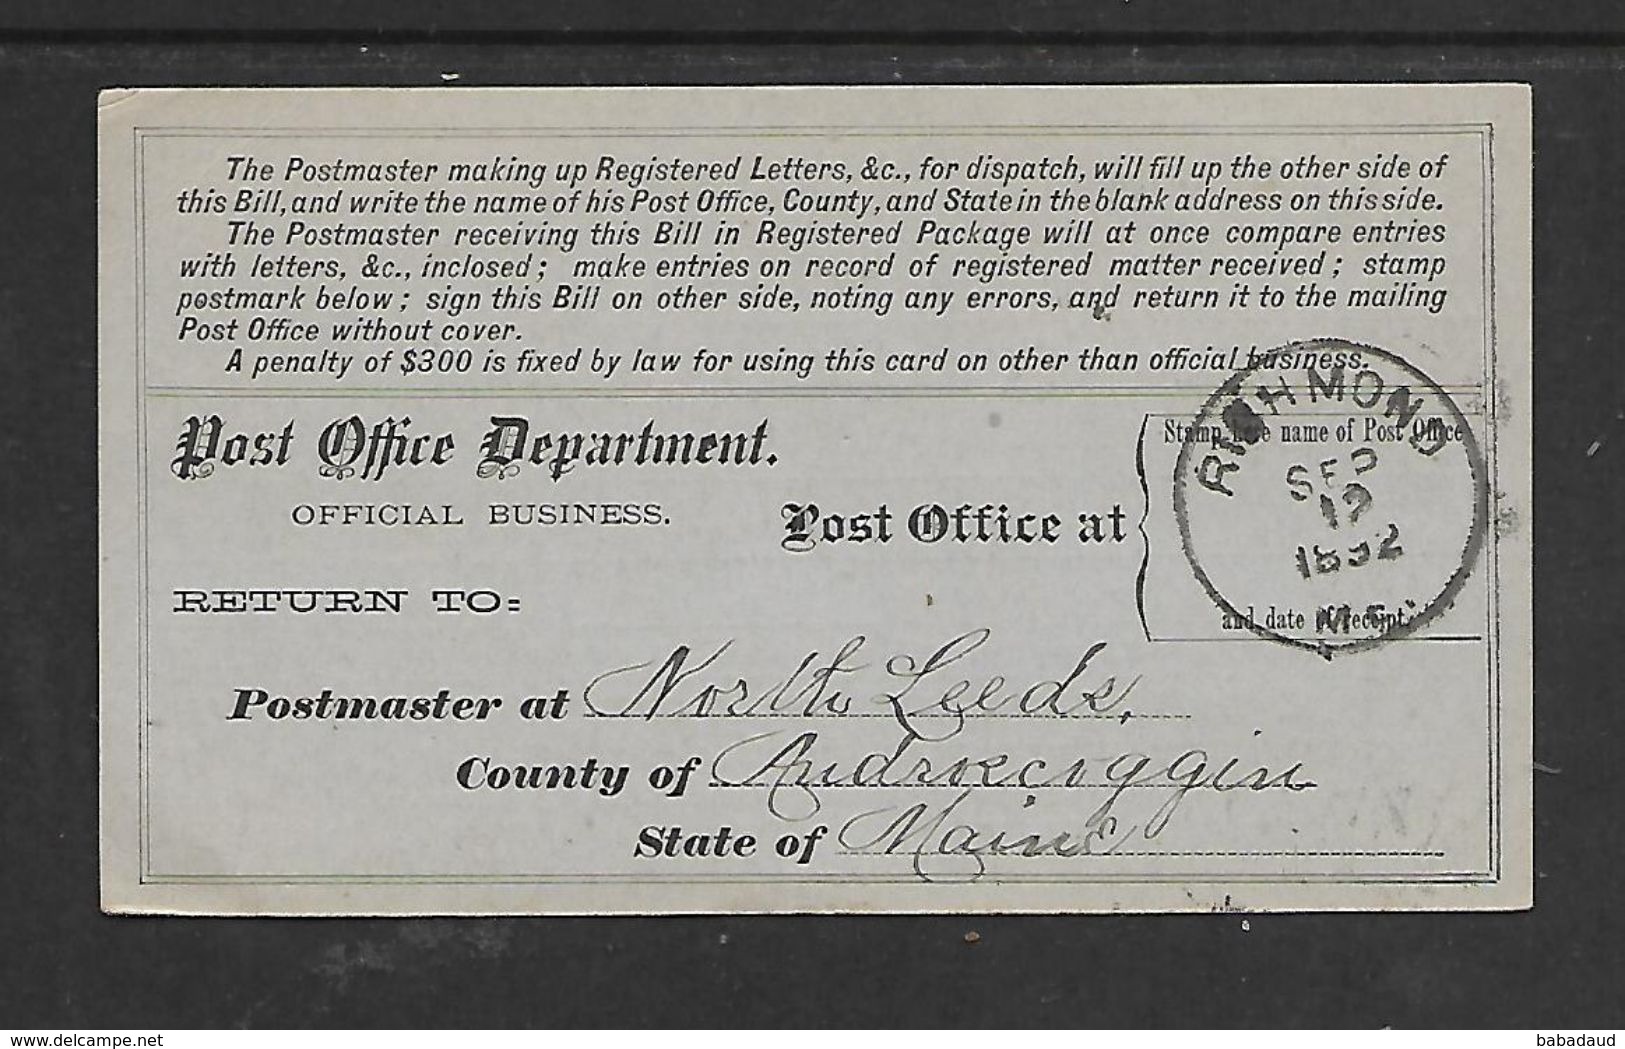 The Postmaster making up Registered Letters, &c., for dispatch, will fill up the other side of
this Bill, and write the name of his Post Office, County, and State in the blank address on this side.
The Postmaster receiving this Bill in Registered Package will at once compare entries
with letters, &c., inclosed; make entries on record of registered matter received; stamp
postmark below; sign this Bill on other side, noting any errors, and return it to the mailing
Post Office without cover.
A penalty of $300 is fixed by law for using this card on other than official business.
Post Office Department.
OFFICIAL BUSINESS.
Post Office at
Stamp here name of Post Office
and date of receipt.
RICHMOND
SEP
12
1892
ME.
RETURN TO:
Postmaster at North Leeds,
County of Androscoggin
State of Maine
delcampe.net
babadaud